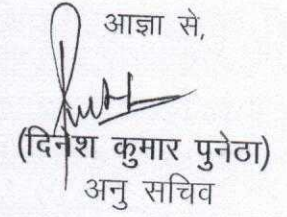 आज्ञा से,
(दिनेश कुमार पुनेठा)
अनु सचिव